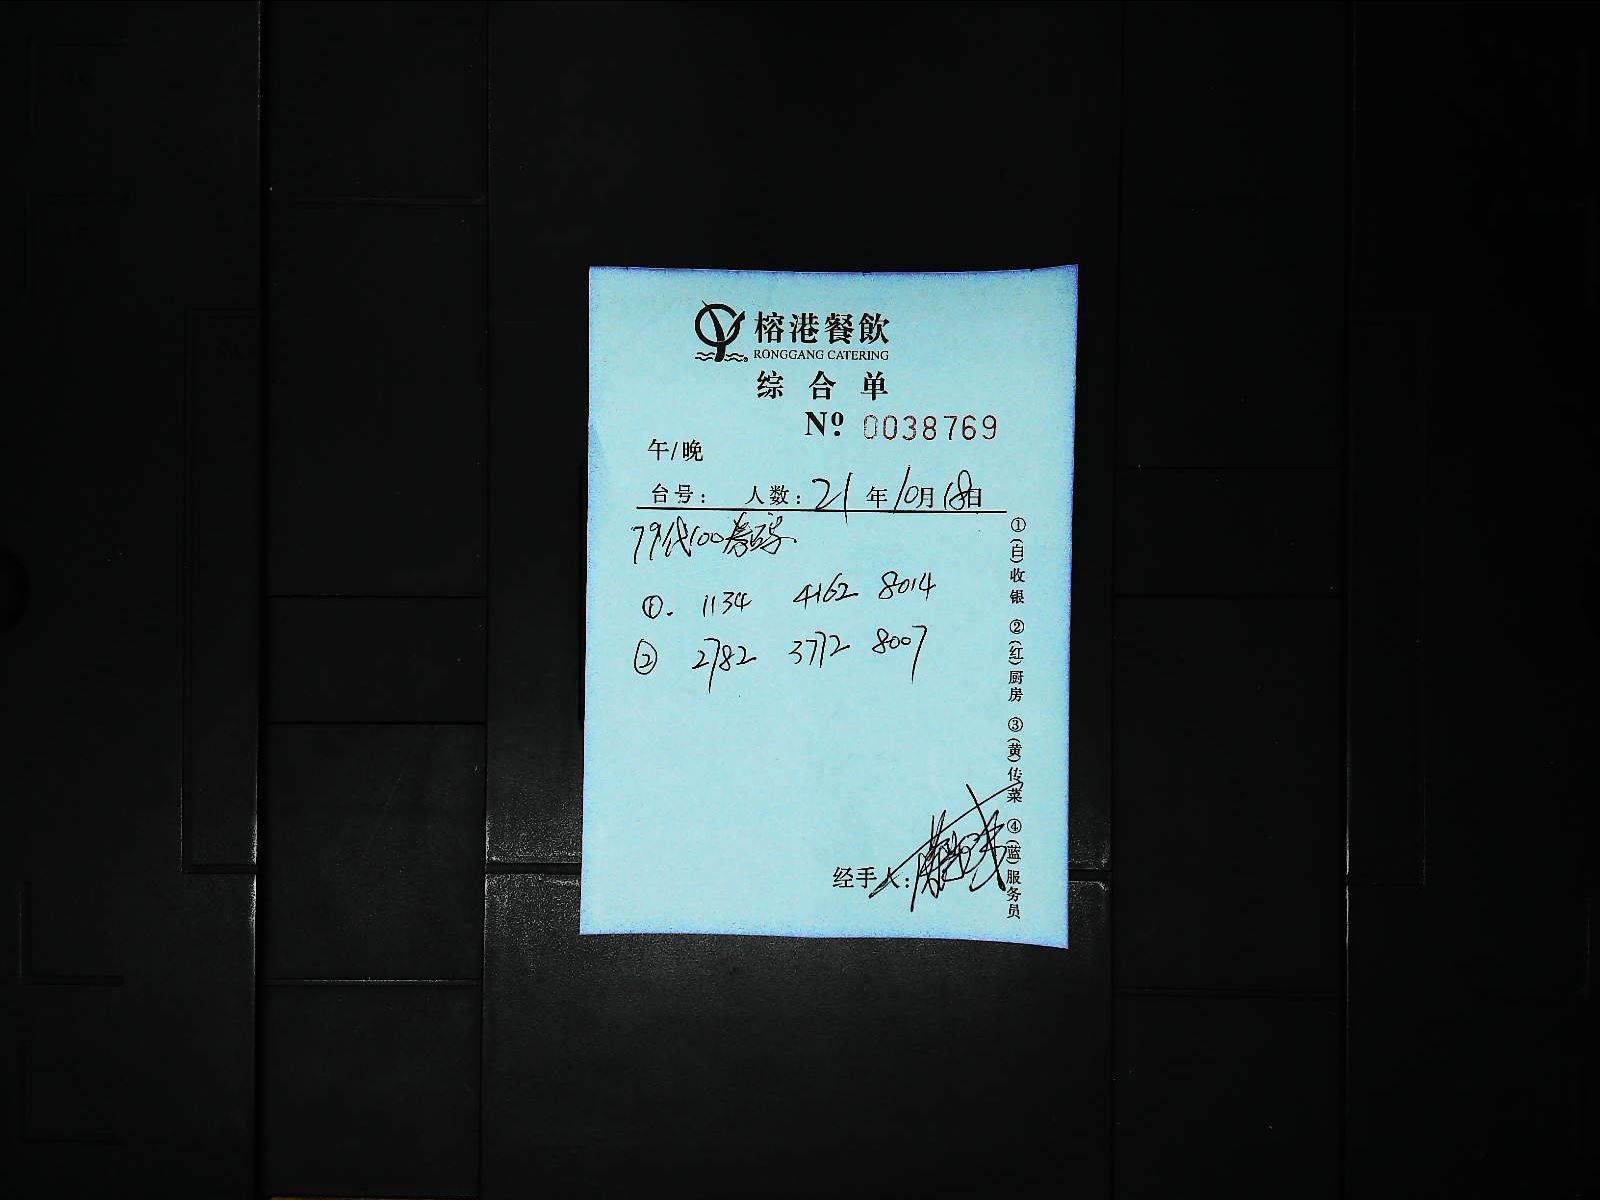 榕港餐飲
RONGGANG CATERING
综合单
Nº 0038769
午/晚
台号: 人数: 21年10月18日
79代100券码
①. 1134 4162 8014
② 2782 3772 8007
经手人:
①(白)收银 ②(红)厨房 ③(黄)传菜 ④(蓝)服务员